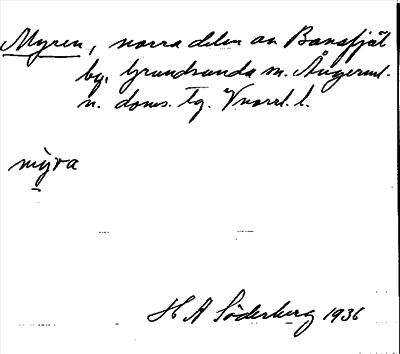 Myren, norra delen av Banafjäl
by, Grundsunda sn. Ångerml.
n. doms. tg. Vnorrl. l.
myra
H A Söderberg 1936